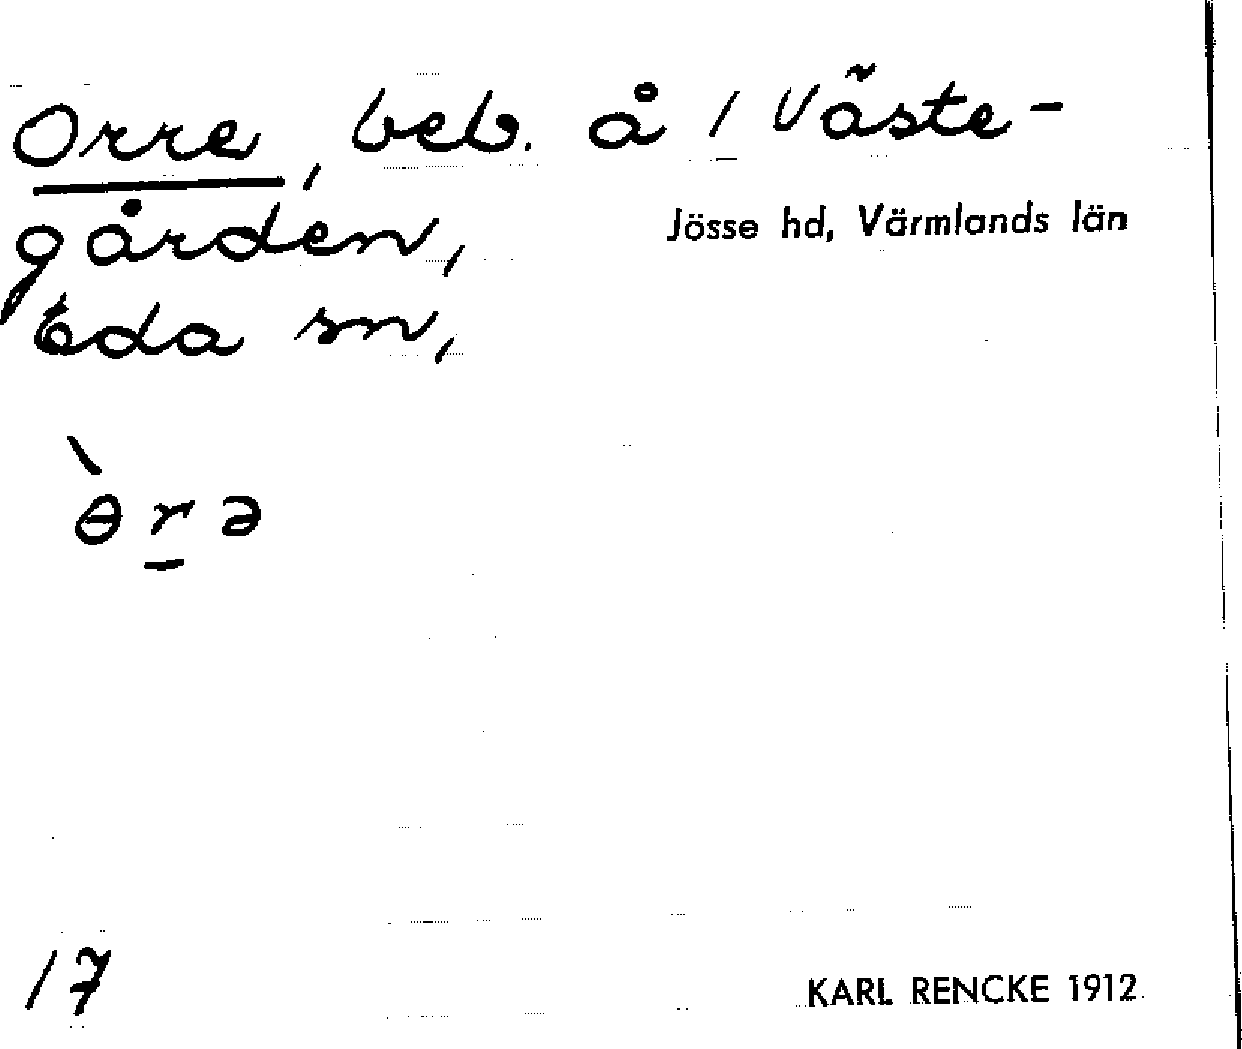 Orre, beb. å 1 Väste-
gården,
Jösse hd, Värmlands län
Eda sn,
ɵ̀r̲ə
17
KARL RENCKE 1912